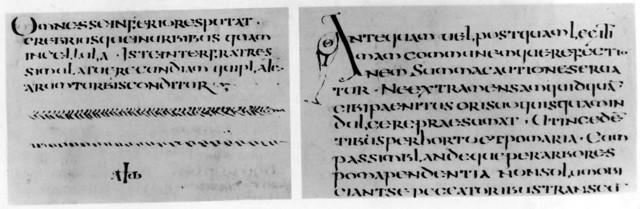 Omnes se inferiores putat ·
crebriusque in urbibus quam
in cellula · Iste inter fratres
simulat uerecundiam qui plate
arum turbis conliditur
Antequam uel postquam legiti
mam communemque refecti
onem summa cautione serua
tur · Ne extra mensam quidqua
cibi paenitus ori suo quisquam in
dulgere praesumat · Ut incede
tibus per hortos et pomaria · Cum
passim blandeque per arbores
poma pendentia non solum obi
ciant se peccatoribus